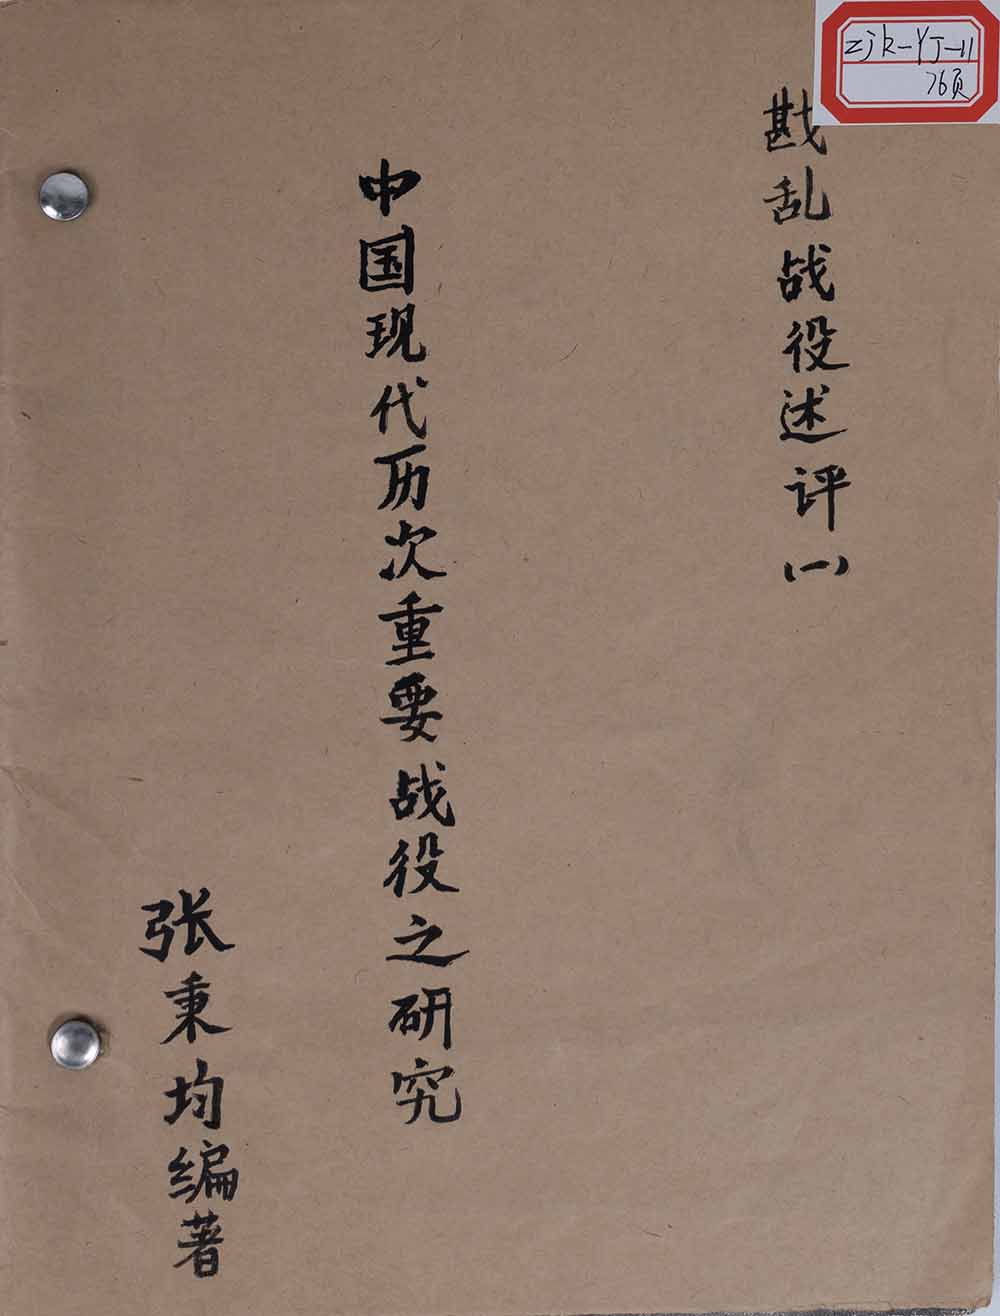 zjk-YJ-11
76页
戡乱战役述评(一)
中国现代历次重要战役之研究
张秉均编著